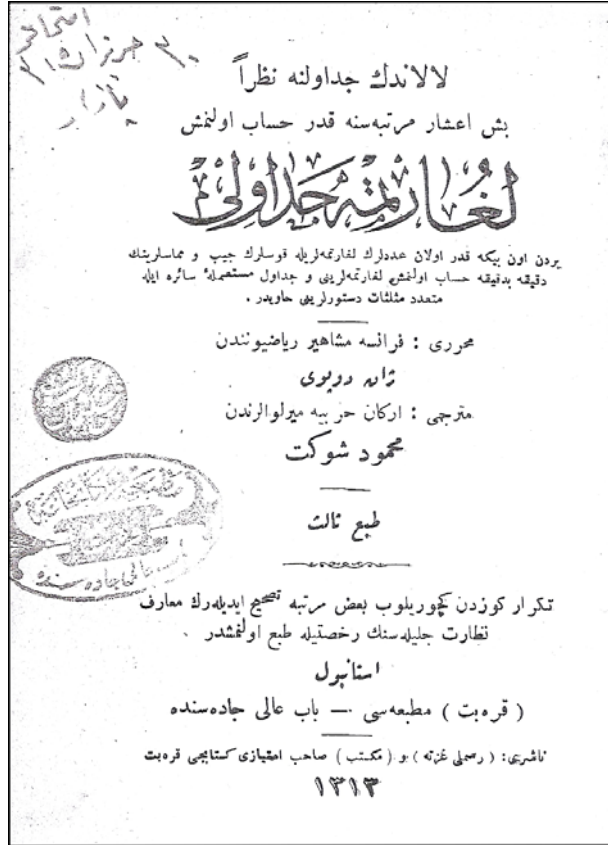 لالاندك جداولنه نظراً
بش اعشار مرتبه‌سنه قدر حساب اولنمش
لغاريتمه جداولى
بردن اون بيكه قدر اولان عددلرك لغارتمه‌لريله قوسلرك جيب و مماسلرينك
دقيقه بدقيقه حساب اولنمش لغارتمه‌لرينى و جداول مستعملهٔ سائره ايله
متعدد مثلثات دستورلرينى حاويدر .
محررى : فرانسه مشاهير رياضيوندن
ژان دوپوى
مترجمى : اركان حربيه ميرلوالرندن
محمود شوكت
طبع ثالث
تكرار كوزدن كچوريلوب بعض مرتبه تصحيح ايديله‌رك معارف
نظارت جليله‌سنك رخصتيله طبع اولنمشدر .
استانبول
( قره‌بت ) مطبعه‌سى — باب عالى جاده‌سنده
ناشرى: ( رسملى غزته ) و ( مكتب ) صاحب امتيازى كتابجى قره‌بت
١٣١٣